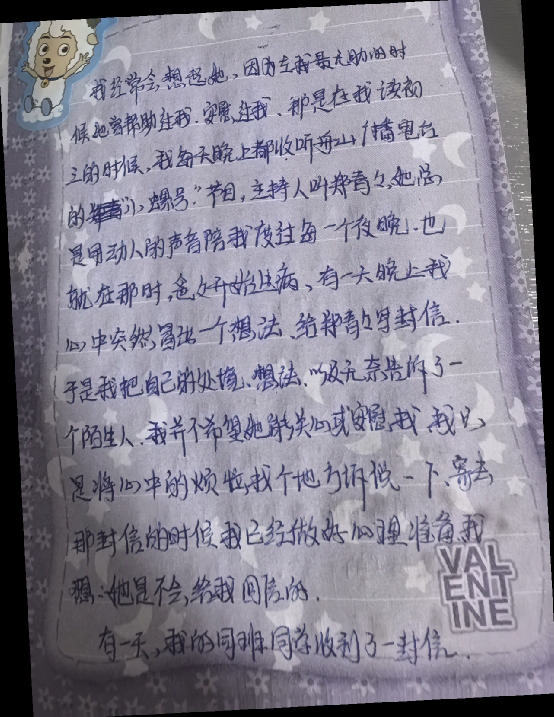 我经常会想起她,因为在我最无助的时
候她曾帮助过我.安慰过我、那是在我读初
三的时候,我每天晚上都收听舟山广播电台
的小螺号"节目,主持人叫郑青々,她总
是用动人的声音陪我度过每一个夜晚.也
就在那时,爸々开始生病、有一天晚上我
心中突然冒出一个想法、给郑青々写封信.
于是我把自己的处境、想法、以及无奈告诉了一
个陌生人.我并不希望她能关心或安慰我,我只
是将心中的烦恼找个地方诉说一下、寄去
那封信的时候我已经做好心理准备,我
想:她是不会给我回信的.
有一天,我的同班同学收到了一封信.
VAL
ENT
INE